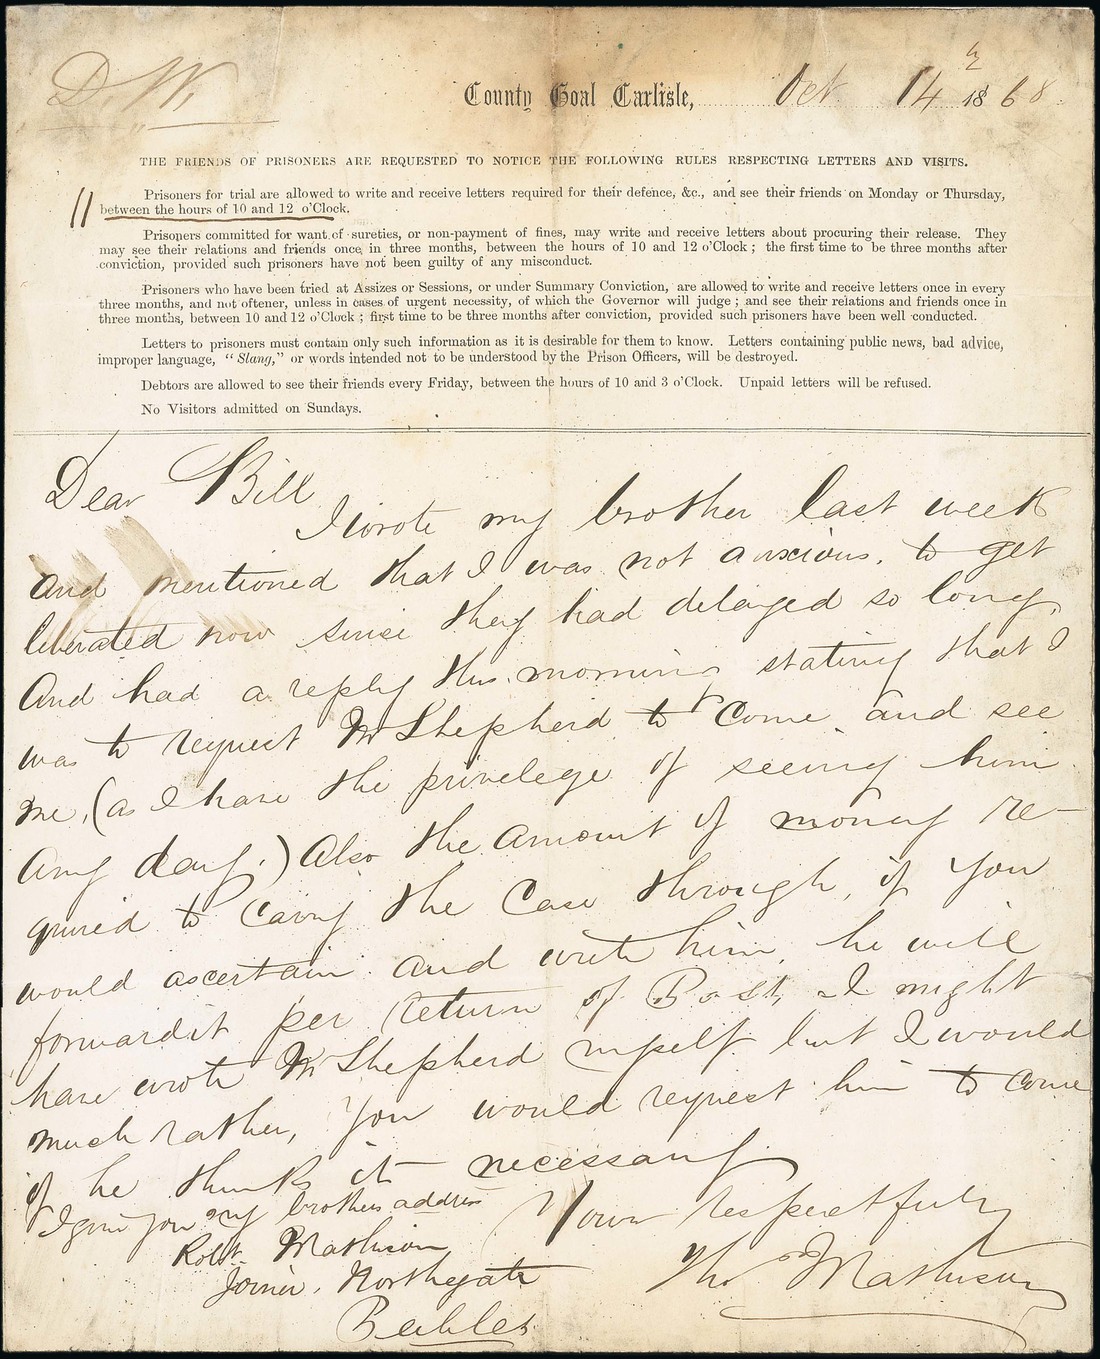 D. W.
County Goal Carlisle, Oct 14th 1868
THE FRIENDS OF PRISONERS ARE REQUESTED TO NOTICE THE FOLLOWING RULES RESPECTING LETTERS AND VISITS.
Prisoners for trial are allowed to write and receive letters required for their defence, &c., and see their friends on Monday or Thursday,
between the hours of 10 and 12 o'Clock.
Prisoners committed for want of sureties, or non-payment of fines, may write and receive letters about procuring their release. They
may see their relations and friends once in three months, between the hours of 10 and 12 o'Clock; the first time to be three months after
conviction, provided such prisoners have not been guilty of any misconduct.
Prisoners who have been tried at Assizes or Sessions, or under Summary Conviction, are allowed to write and receive letters once in every
three months, and not oftener, unless in cases of urgent necessity, of which the Governor will judge; and see their relations and friends once in
three months, between 10 and 12 o'Clock; first time to be three months after conviction, provided such prisoners have been well conducted.
Letters to prisoners must contain only such information as it is desirable for them to know. Letters containing public news, bad advice,
improper language, "Slang," or words intended not to be understood by the Prison Officers, will be destroyed.
Debtors are allowed to see their friends every Friday, between the hours of 10 and 3 o'Clock. Unpaid letters will be refused.
No Visitors admitted on Sundays.
Dear Bill
I wrote my brother last week
and mentioned that I was not anxious, to get
liberated now since they had delayed so long,
And had a reply this morning stating that I
was to request Mr Shepherd to come and see
me, (as I have the privelege of seeing him
any day.) Also the amount of money re-
quired to carry the case through, if you
would ascertain and write him, he will
forward it per return of Post, I might
have wrote Mr Shepherd myself but I would
much rather, you would request him to come
if he thinks it necessary
I give you my brothers address
Yours respectfully
Robt Mathison
Thos Mathison
Joiner, Northgate
Peebles